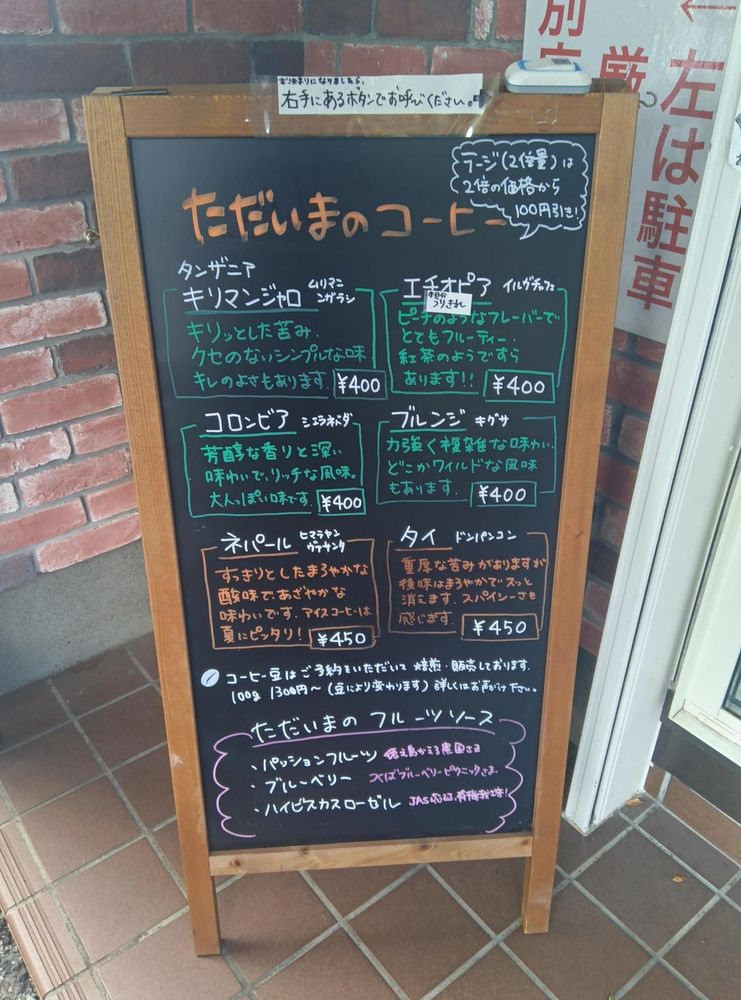 お決まりになりましたら、
右手にあるボタンでお呼びください。
ラージ(2倍量)は
2倍の価格から
100円引き!
ただいまのコーヒー
タンザニア
キリマンジャロ
ムリマニ
ンガラシ
キリッとした苦み、
クセのないシンプルな味
キレのよさもあります。
¥400
エチオピア
イルガチェフェ
本日分
うりきれ
ピーチのようなフレーバーで
とてもフルーティー.
紅茶のようですら
あります!!
¥400
コロンビア
シエラネバダ
芳醇な香りと深い
味わいで、リッチな風味。
大人っぽい味です。
¥400
ブルンジ
キグサ
力強く複雑な味わい、
どこかワイルドな風味
もあります。
¥400
ネパール
ヒマラヤン
すっきりとしたまろやかな
酸味であざやかな
味わいです。アイスコーヒーは
夏にピッタリ!
¥450
タイ
ドンパンコン
重厚な苦みがありますが
後味はまろやかでスッと
消えます。スパイシーさも
感じます。
¥450
コーヒー豆はご予約をいただいて焙煎・販売しております。
100g 1300円〜(豆により変わります)詳しくはお声がけ下さい。
ただいまのフルーツソース
・パッションフルーツ
・ブルーベリー つくばブルーベリーピクニックさま
・ハイビスカスローゼル JAS認証、有機栽培!
左は駐車
別
厳